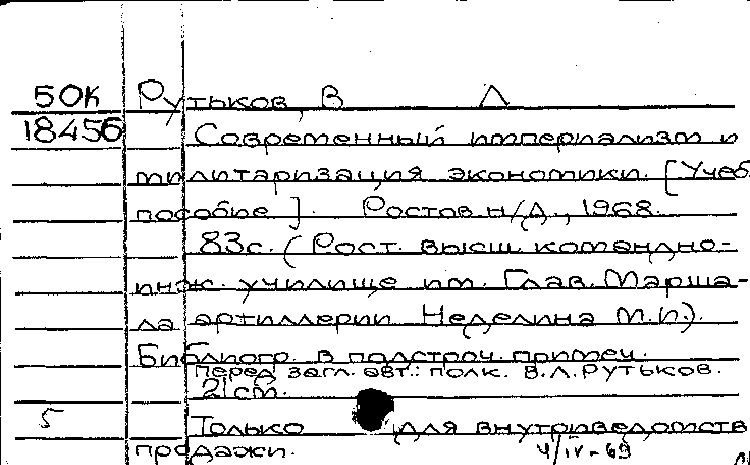 50К Рутьков, В Л
18456 Современный империализм и
милитаризация экономики. [Учеб.
пособие]. Ростов н/Д., 1968.
83с. (Рост. высш. командно-
инж. училище им. Глав. Марша-
ла артиллерии Неделина М.И).
Библиогр. в подстроч. примеч.
Перед загл. авт.: полк. В.Л. Рутьков.
21 см.
5 Только для внутриведомств
продажи. 4/IV-69